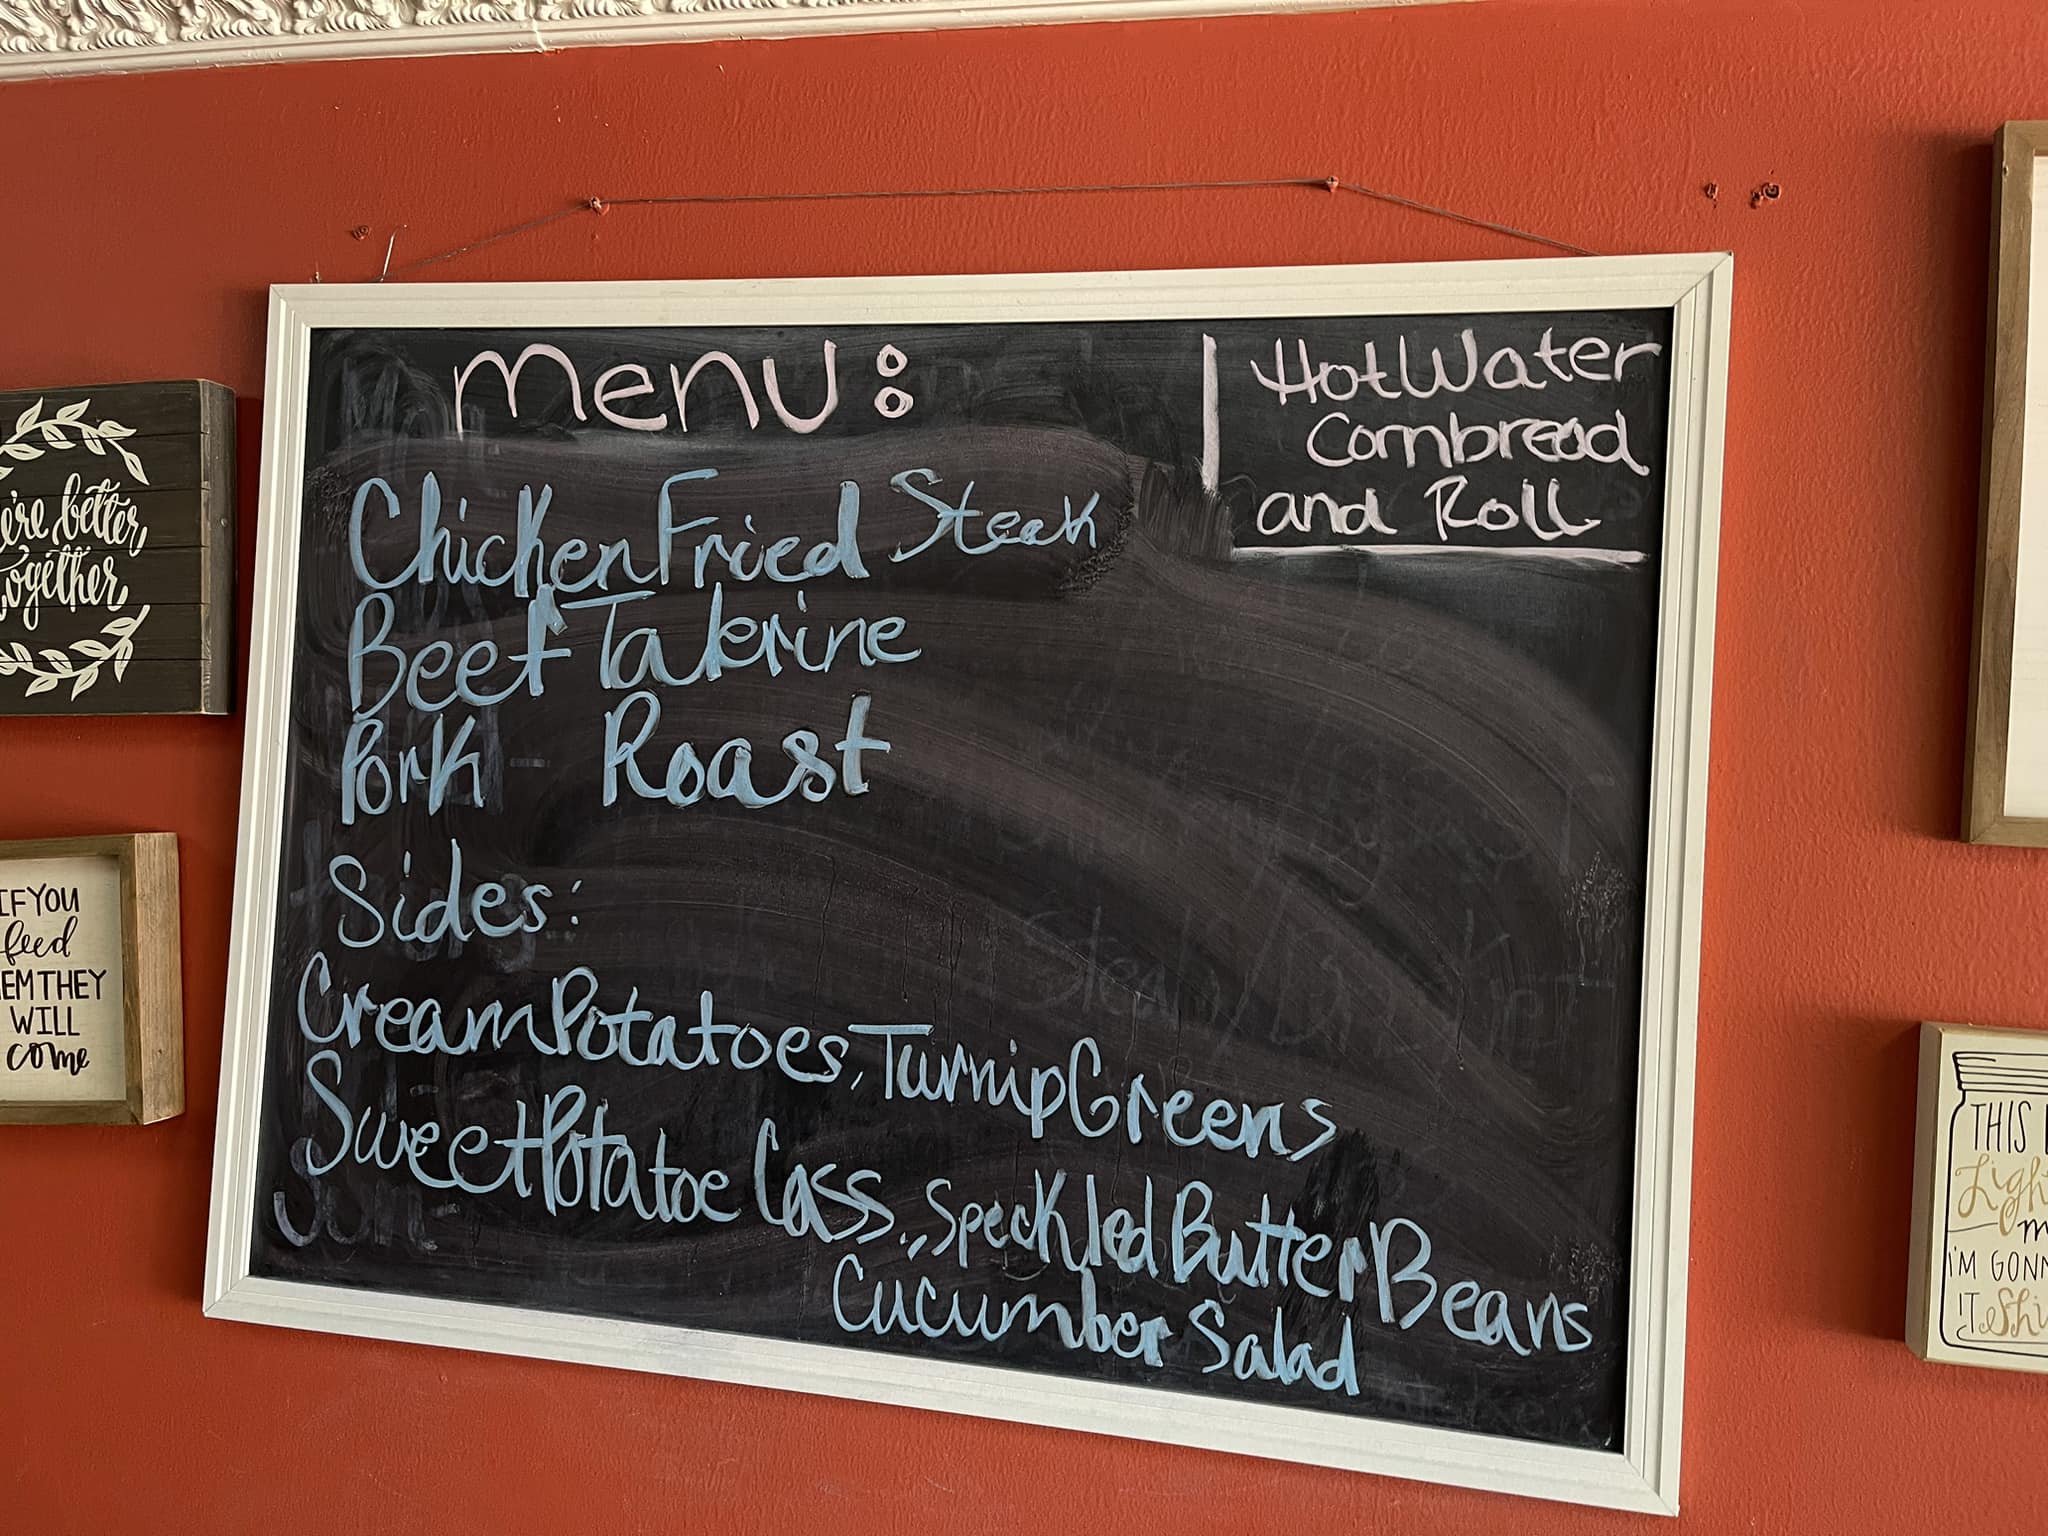 menu:
Hot Water
Cornbread
and Roll
Chicken Fried Steak
Beef Talerine
Pork Roast
Sides:
Cream Potatoes, Turnip Greens
Sweet Potatoe Cass., Speckled Butter Beans
Cucumber Salad
better
together
IF YOU
feed
THEY
WILL
come
THIS
I'M
IT